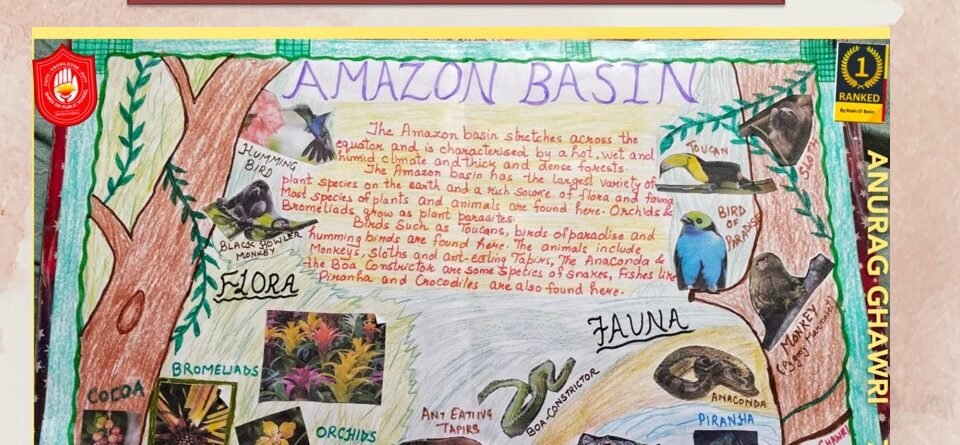 AMAZON BASIN
The Amazon basin stretches across the
equator and is characterised by a hot, wet and
humid climate and thick and dense forests.
The Amazon basin has the largest variety of
plant species on the earth and a rich source of flora and fauna
Most species of plants and animals are found here. Orchids &
Bromeliads, grow as plant parasites.
Birds Such as Toucans, birds of paradise and
humming birds are found here. The animals include
Monkeys, sloths and ant-eating Tapirs, The Anaconda &
the Boa Constrictor are some species of snakes, Fishes like
Piranha and Crocodiles are also found here.
HUMMING
BIRD
BLACK HOWLER
MONKEY
TOUCAN
SLOTH
BIRD
OF
PARADISE
MONKEY
(Pygmy Marmoset)
FLORA
BROMELIADS
COCOA
ORCHIDS
FAUNA
BOA CONSTRICTOR
ANACONDA
ANT EATING
TAPIRS
PIRANHA
1
RANKED
By Brain O' Brain
ANURAG GHAWRI